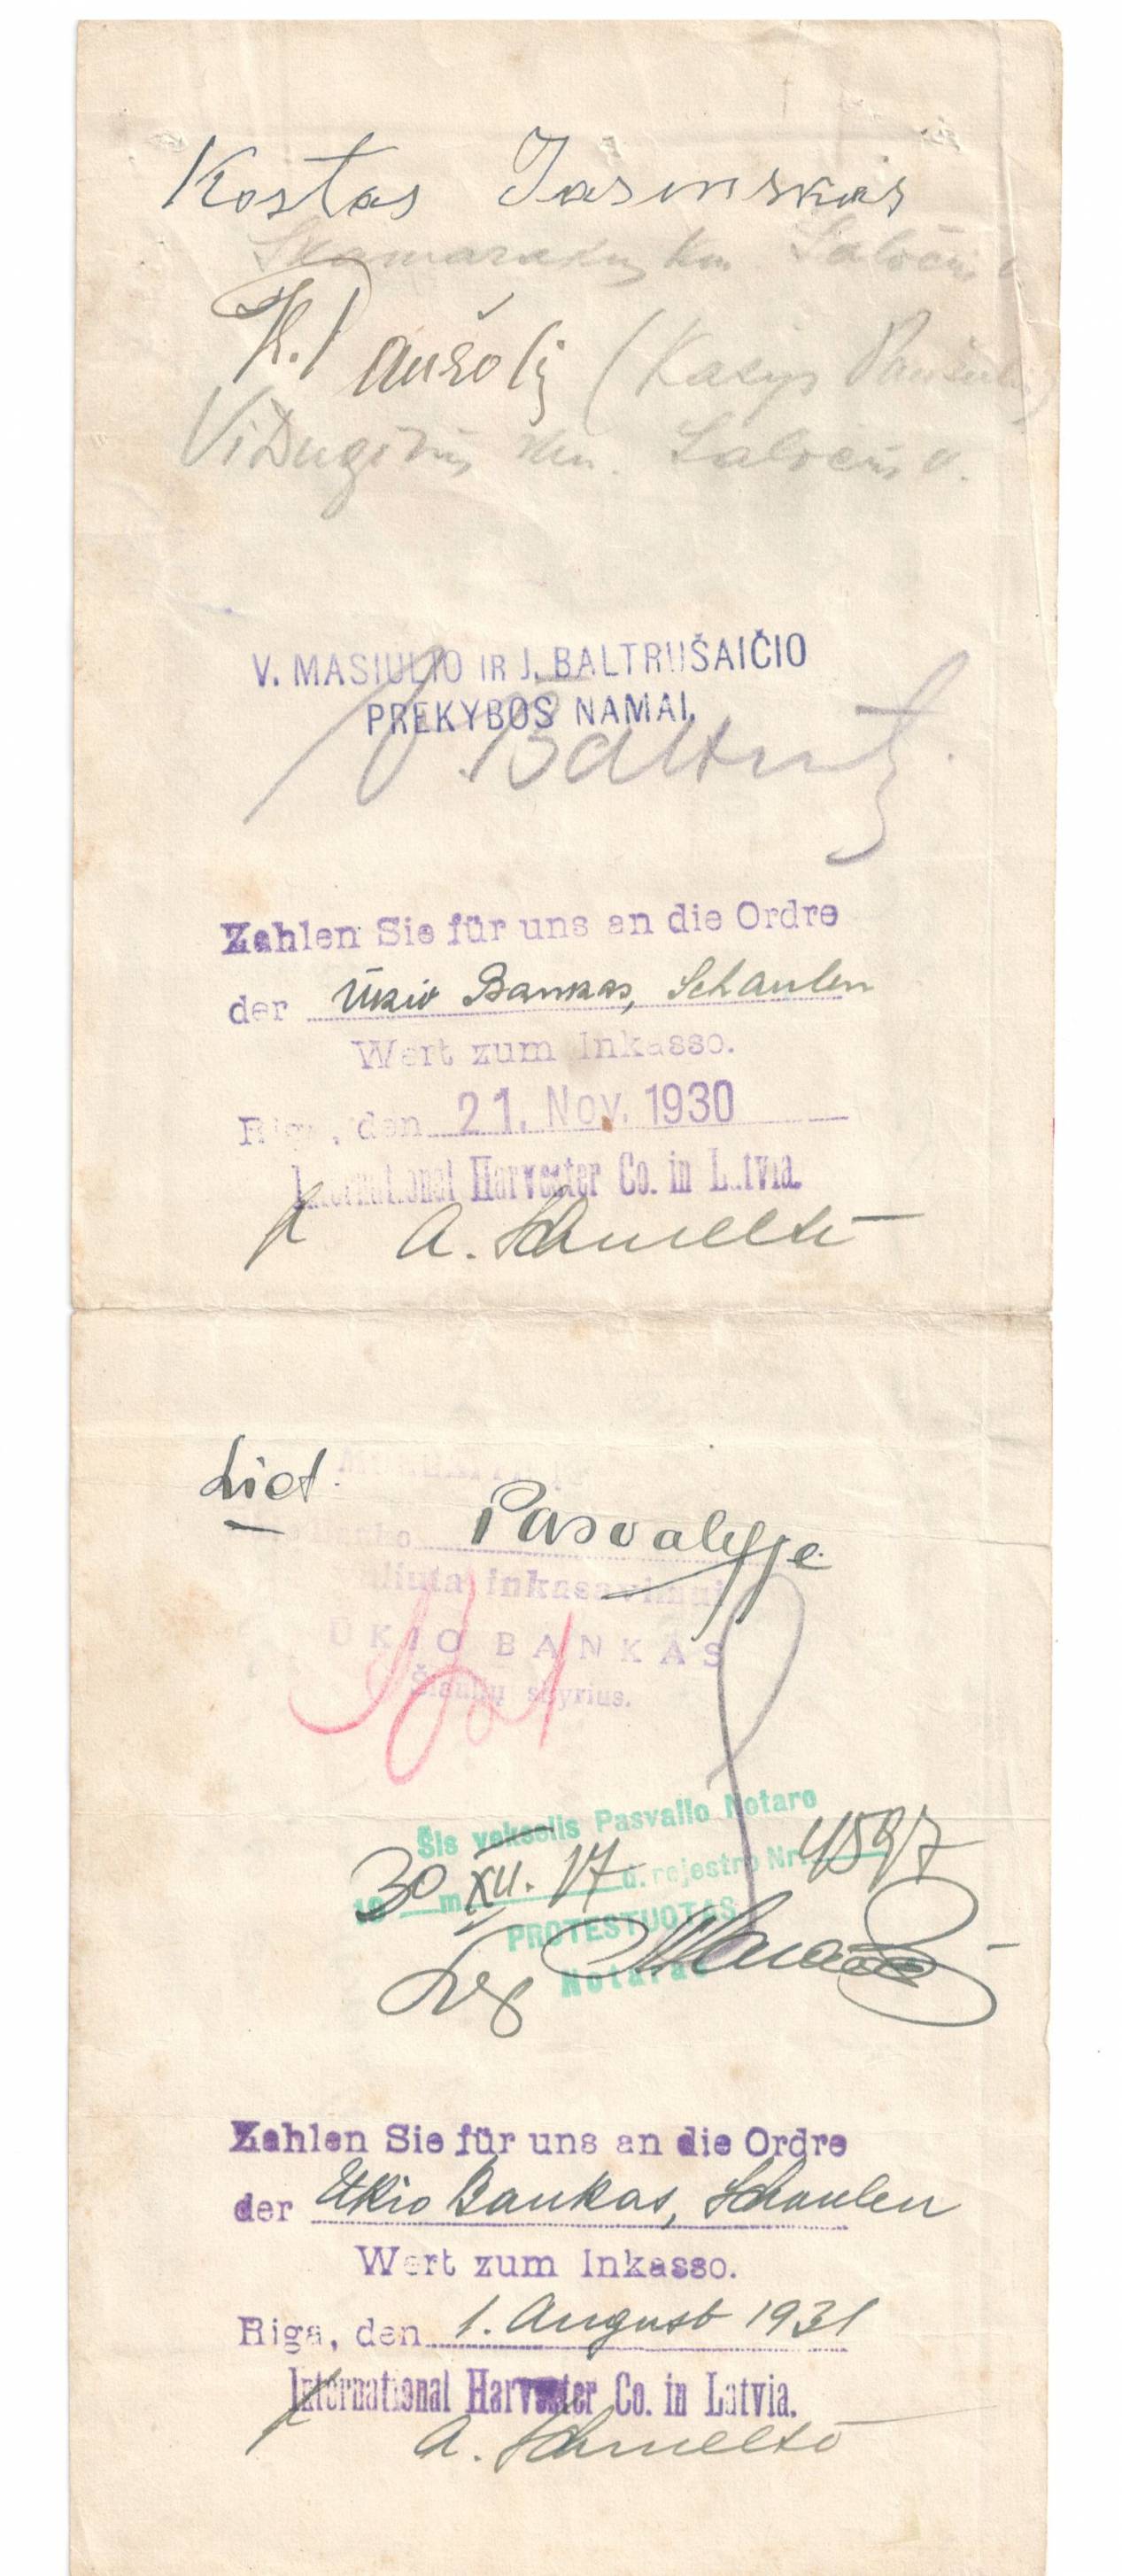 Kostas Jasinskas
km. Saločių v.
K. Paušolį (Kazys
Vidugirių km. Saločių v.
V. MASIULIO IR J. BALTRUŠAIČIO
PREKYBOS NAMAI.
Zahlen Sie für uns an die Ordre
der Ūkio Bankas, Schaulen
Wert zum Inkasso.
Riga, den 21. Nov. 1930
International Harvester Co. in Latvia.
A. Schmeltz
Liet.
Banko Pasvalyje
Valiuta Inkasavimui
ŪKIO BANKAS
Šiaulių skyrius.
Šis vekselis Pasvalio Notaro
1930 m. XII. 17 d. rejestro Nr. 4597
PROTESTUOTAS
Notaras
Zahlen Sie für uns an die Ordre
der Ūkio Bankas, Schaulen
Wert zum Inkasso.
Riga, den 1. August 1931
International Harvester Co. in Latvia.
A. Schmeltz